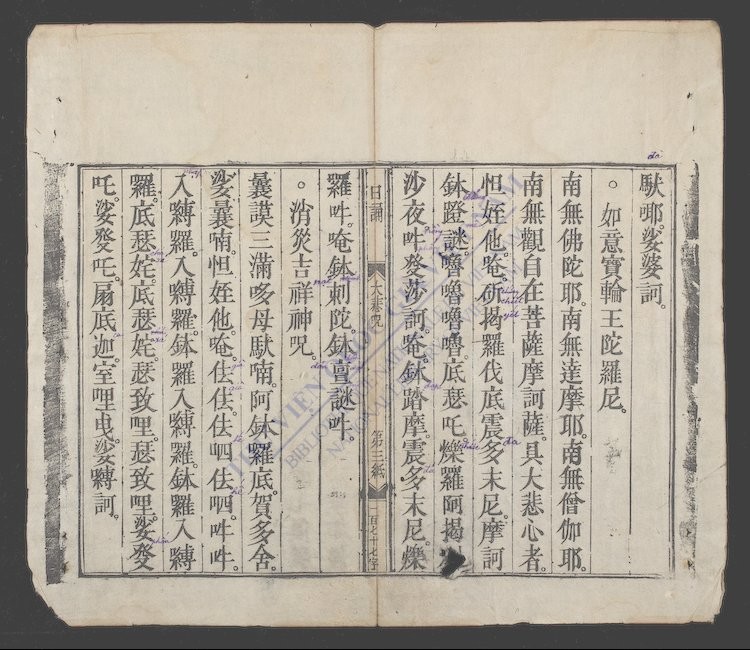 馱耶。娑婆訶。
。如意寶輪王陀羅尼。
南無佛陀耶。南無達摩耶。南無僧伽耶。
南無觀自在菩薩摩訶薩。具大悲心者。
怛姪他。唵。斫揭羅伐底。震多末尼。摩訶
鉢蹬謎。嚕嚕嚕嚕。底瑟吒。爍羅阿揭
沙夜吽。癹莎訶。唵。鉢蹋摩。震多末尼。爍
日誦
大悲咒
第三紙
一百七十七字
羅吽。唵鉢剌陀。鉢亶謎吽。
。消災吉祥神咒。
曩謨三滿哆。母馱喃。阿鉢羅底。賀多舍。
娑曩喃。怛姪他。唵。佉佉。佉呬。佉呬。吽吽。
入嚩羅。入嚩羅。鉢羅入嚩羅。鉢羅入嚩
羅。底瑟姹。底瑟姹。瑟致哩。瑟致哩。娑癹
吒。娑癹吒。扇底迦。室哩曳。娑嚩訶。
THƯ VIỆN QUỐC GIA VIỆT NAM
NATIONAL LIBRARY OF VIETNAM